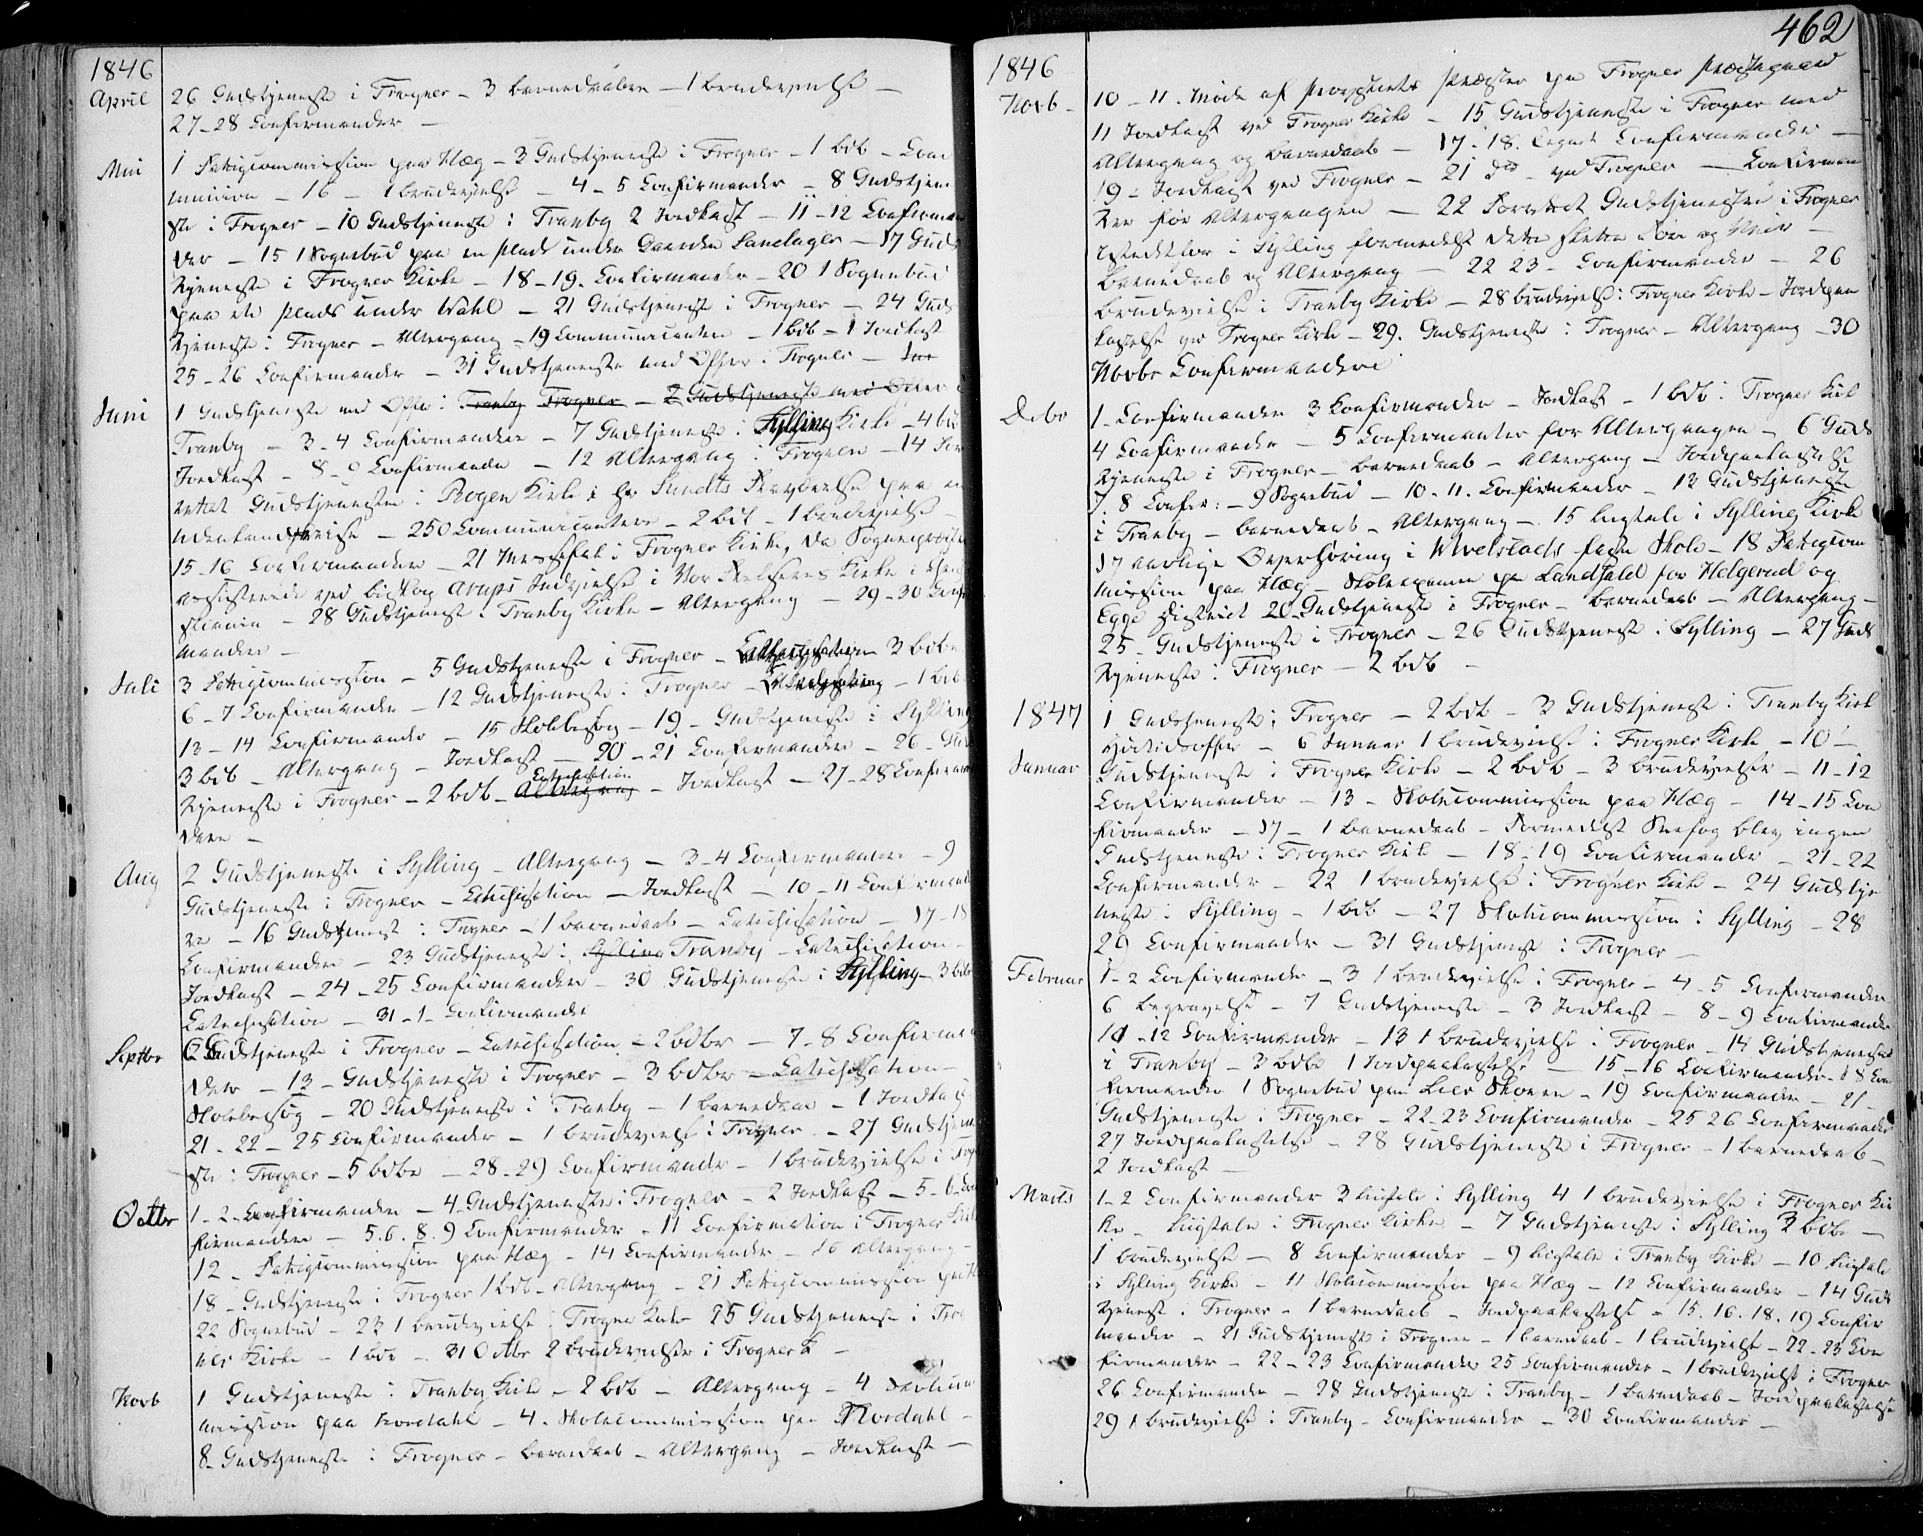 1846
April
26 Gudstjeneste i Frogner – 3 barnedaaben – 1 brudevielse –
27–28 Confirmander –
Mai
1 Fattigcommission paa Hæg – 3 Gudstjeneste i Frogner – 1 bdb – Com
munion – 16 – 1 brudevielse – 4–5 Confirmander – 8 Gudstjene
ste i Frogner – 10 Gudstjeneste i Tranby 2 Jordkast – 11–12 Confirman
der – 15 1 Sognebud paa en Plads under Gaarden Landager – 17 Guds
tjeneste i Frogner Kirke – 18–19. Confirmander – 20 1 Sognebud
paa et Plads under Wahl – 21 Gudstjeneste i Frogner – 24 Guds
tjeneste i Frogner – Altergang – 19 Communicanter – 1 bdb – 1 Jordkast
25–26 Confirmander – 31 Gudstjeneste med Offer i Frogner –
Juni
1 Gudstjeneste med Offer i Tranby Frogner – 2 Gudstjeneste med Offer i
Tranby – 3–4 Confirmander – 7 Gudstjeneste i Sylling Kirke – 4 bd
Jordkast – 8–9 Confirmander – 12 Altergang i Frogner – 14 For
rettet Gudstjenesten i Røgen Kirke i Hr Sundts Fraværelse paa en
Udenlandsreise – 250 Communicanter – 2 bdb – 1 brudevielse –
15–16 Confirmander – 21 Messefal i Frogner Kirke, da Sognepræsten
assisterede ved Biskop Arups Indvielse i Vor Frelsers Kirke i Chri
stiania – 28 Gudstjeneste i Tranby Kirke – Altergang – 29–30 Confir
mander –
Juli
3 Fattigcommission – 5 Gudstjeneste i Frogner – 3 bdbe
6–7 Confirmander – 12 Gudstjeneste i Frogner – – 1 bdb
13–14 Confirmander – 15 Skolebesøg – 19 – Gudstjeneste i Sylling
3 bdb – Altergang – Jordkast – 20–21 Confirmander – 26 – Guds
tjeneste i Frogner – 2 bdb – Altergang Catechisation – Jordkast – 27–28 Confirman
dere –
Aug
2 Gudstjeneste i Sylling – Altergang – 3–4 Confirmander – 9
Gudstjeneste i Frogner – Catechisation – Jordkast – 10–11 Confirmand
er – 16 Gudstjenest i Frogner – 1 barnedaab – Catechisation – 17–18
Confirmander – 23 Gudstjeneste i Sylling Tranby – Catechisation –
Jordkast – 24–25 Confirmander – 30 Gudstjeneste i Sylling – 3 bdb
Catechisation – 31–1– Confirmander
Septbr
6 Gudstjeneste i Frogner – Catechisation – 2 bdbe – 7–8 Confirman
der – 13 – Gudstjeneste i Frogner – 3 bdbe – Catechisation –
Skolebesøg – 20 Gudstjeneste i Tranby – 1 barnedaab – 1 Jordkast
21–22–25 Confirmander – 1 brudevielse i Frogner – 27 Gudstjene
ste i Frogner – 5 bdbe – 28–29 Confirmander – 1 brudevielse i Frogn
Octbr
1–2– Confirmander – 4 Gudstjeneste i Frogner – 2 Jordkast – 5–6 Con
firmander – 5.6.8.9 Confirmander – 11 Confirmation i Frogner Kirke
12 – Fattigcommission paa Hæg – 14 Confirmander – 16 Altergang –
18 – Gudstjeneste i Frogner 1 bdb – Altergang – 21 Fattigcommission paa H
22 Sognebud – 23 1 brudevielse i Frogner Kirke 25 Gudstjeneste i Frog
ner Kirke – 1 bdb – 31 Octbr 2 brudevielser i Frogner K –
Novb
1 Gudstjeneste i Tranby Kirke – 2 bdb – Altergang – 4 Skolecom
mission paa Nordahl – 4. Skolecommission paa Nordahl –
8 – Gudstjeneste i Frogner – barnedaab – Altergang – Jordkast –
462
1846
Novb –
10–11. Møde af Provstiets Præster paa Frogner Præstegaard
11 Jordkast ved Frogner Kirke – 15 Gudstjeneste i Frogner med
Altergang og barnedaab – 17–18. Confirmander –
19 – Jordkast ved Frogner – 21 do – ved Frogner – Confirman
der før Altergangen – 22 Forrettet Gudstjenesten i Frogner
istedetfor i Sylling formedelst Føre og Veir –
barnedaab og Altergang – 22 23 – Confirmander – 26
brudevielse i Tranby Kirke – 28 brudevielse i Frogner Kirke – Jordpaa
kastelse ved Frogner Kirke – 29. Gudstjeneste i Frogner – Altergang – 30
Novbr Confirmandere
Debr
1– Confirmander 3 Confirmander – Jordkast – 1 bdb i Frogner Kirk
4 Confirmander – 5 Confirmanter for Altergangen – 6 Guds
tjeneste i Frogner – barnedaab – Altergang – Jordpaakastelse
7. 8 Confir: – 9 Sognebud – 10. 11. Confirmander – 13 Gudstjeneste
i Tranby – barnedaab – Altergang – 15 Ligtale i Sylling Kirke
17 aarlige Overhøring i Wivelstads faste Skole – 18 Fattigcom
mission paa Hæg – Skoleexamen paa Landfald for Helgerud og
Egge District 20 Gudstjeneste i Frogner – barnedaab – Altergang –
25 – Gudstjeneste i Frogner – 26 Gudstjeneste i Sylling – 27 Guds
tjeneste i Frogner – 2 bdb –
1847
Januar
1 Gudstjeneste i Frogner – 2 bdb – 3 Gudstjeneste i Tranby Kirke
Høitidsoffer – 6 Januar 1 brudevielse i Frogner Kirke – 10 –
Gudstjeneste i Frogner Kirke – 2 bdb – 3 brudevielser – 11–12
Confirmander – 13 – Skolecommission paa Hæg – 14–15 Con
firmander – 17 – 1 barnedaab – Formedelst Snefog blev ingen
Gudstjeneste i Frogner Kirke – 18–19 Confirmander – 21–22
Confirmander – 22 1 brudevielse i Frogner Kirke – 24 Gudstje
neste i Sylling – 1 bdb – 27 Skolecommission i Sylling – 28
29 Confirmander – 31 Gudstjeneste i Frogner –
Februar
1–2 Confirmander – 3 1 brudevielse i Frogner – 4–5 Confirmander
6 begravelse – 7 Gudstjeneste – 3 Jordkast – 8–9 Confirmander
11–12 Confirmander – 13 1 brudevielse i Frogner – 14 Gudstjeneste
i Tranby – 3 bdbe 1 Jordpaakastelse – 15–16 Confirmander – 18 Con
firmander 1 Sognebud paa Lier Skoven – 19 Confirmander – 21 –
Gudstjeneste i Frogner – 22–23 Confirmander – 25 26 Confirmander
27 Jordpaakastelse – 28 Gudstjeneste i Frogner – 1 barnedaab –
2 Jordkast –
Marts
1–2 Confirmander 3 Ligtale i Sylling 4 1 brudevielse i Frogner Kir
ke – Ligtale i Frogner Kirke – 7 Gudstjeneste i Sylling 3 bdbe –
1 brudevielse – 8 Confirmander – 9 Ligtale i Tranby Kirke – 10 Ligtale
i Sylling Kirke – 11 Skolecommission paa Hæg – 12 Confirmander – 14 Guds
tjeneste i Frogner – 1 barnedaab – Jordpaakastelse – 15. 16. 18. 19 Confir
mander – 21 Gudstjeneste i Frogner – 1 barnedaab – 1 brudevielse – 22–23 Con
firmander – 22–23 Confirmander 25 Confirmander – 1 brudevielse i Frogner
26 Confirmander – 28 Gudstjeneste i Tranby – 1 barnedaab – Jordpaakastelse
29 1 brudevielse i Tranby – Confirmander – 30 Confirmander –